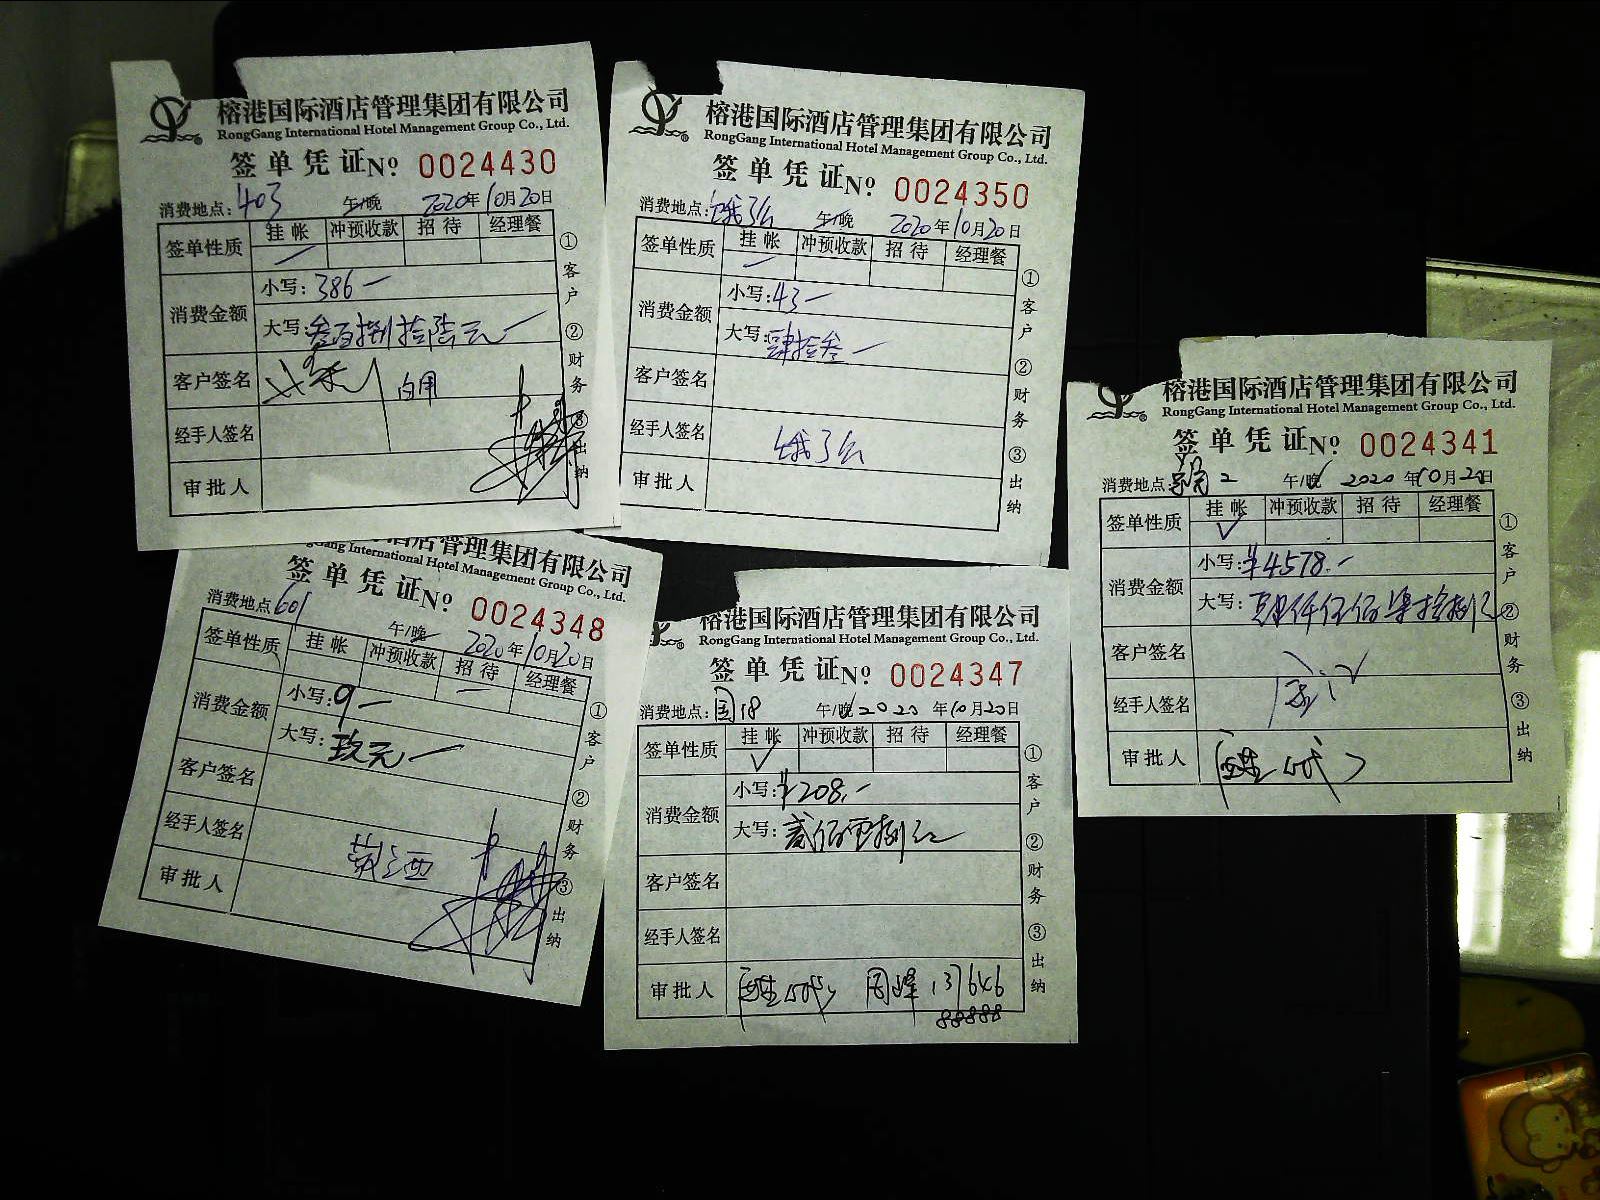 榕港国际酒店管理集团有限公司
RongGang International Hotel Management Group Co., Ltd.
签单凭证 № 0024430
消费地点:403 午/晚 2020年10月20日
签单性质 挂帐 冲预收款 招待 经理餐
消费金额 小写:386一
大写:叁百捌拾陆元一
客户签名 自用
经手人签名
审批人
①客户 ②财务 ③出纳
榕港国际酒店管理集团有限公司
RongGang International Hotel Management Group Co., Ltd.
签单凭证 № 0024350
消费地点:饿了么 午/晚 2020年10月20日
签单性质 挂帐 冲预收款 招待 经理餐
消费金额 小写:43一
大写:肆拾叁一
客户签名
经手人签名 饿了么
审批人
①客户 ②财务 ③出纳
榕港国际酒店管理集团有限公司
RongGang International Hotel Management Group Co., Ltd.
签单凭证 № 0024341
消费地点: 2 午/晚 2020年10月20日
签单性质 挂帐 冲预收款 招待 经理餐
消费金额 小写:¥4578.-
大写:肆仟伍佰柒拾捌元
客户签名
经手人签名
审批人
①客户 ②财务 ③出纳
酒店管理集团有限公司
Gang International Hotel Management Group Co., Ltd.
签单凭证 № 0024348
消费地点601 午/晚 2020年10月20日
签单性质 挂帐 冲预收款 招待 经理餐
消费金额 小写:9一
大写:玖元一
客户签名
经手人签名
审批人
①客户 ②财务 ③出纳
榕港国际酒店管理集团有限公司
RongGang International Hotel Management Group Co., Ltd.
签单凭证 № 0024347
消费地点:国18 午/晚 2020年10月20日
签单性质 挂帐 冲预收款 招待 经理餐
消费金额 小写:¥208.-
大写:贰佰零捌元
客户签名
经手人签名
审批人 周峰 137646
88888
①客户 ②财务 ③出纳